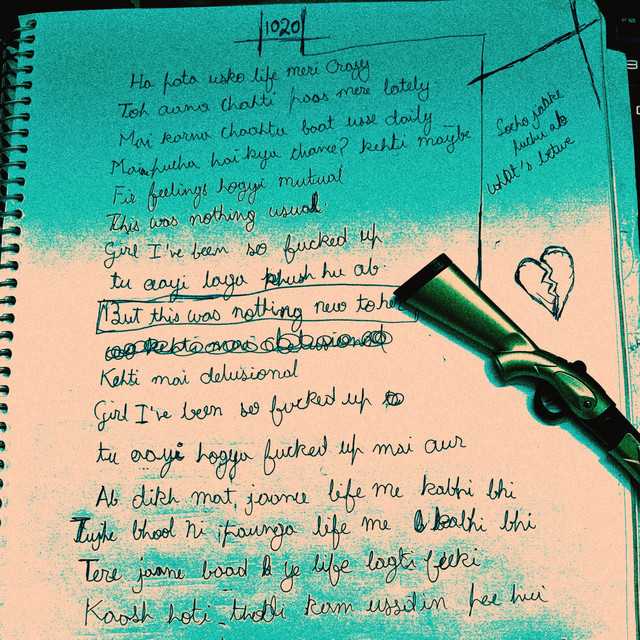 1020
Ha pata usko life meri crazy
Toh aana chahti paas mere lately
Mai karna chaahta baat usse daily
Mai pucha hai kya chance? kehti maybe
Fir feelings hogyi mutual
This was nothing usual
Girl I've been so fucked up
tu aayi laga khush hu ab
But this was nothing new to her
Kehti mai delusional
Girl I've been so fucked up
tu aayi hogya fucked up mai aur
Ab dikh mat jaana life me kabhi bhi
Tujhe bhool ni paunga life me kabhi bhi
Tere jaane baad ye life lagti feeki
Kaash hoti thodi kam ussdin pee hui
Socho jaake
ab
what's